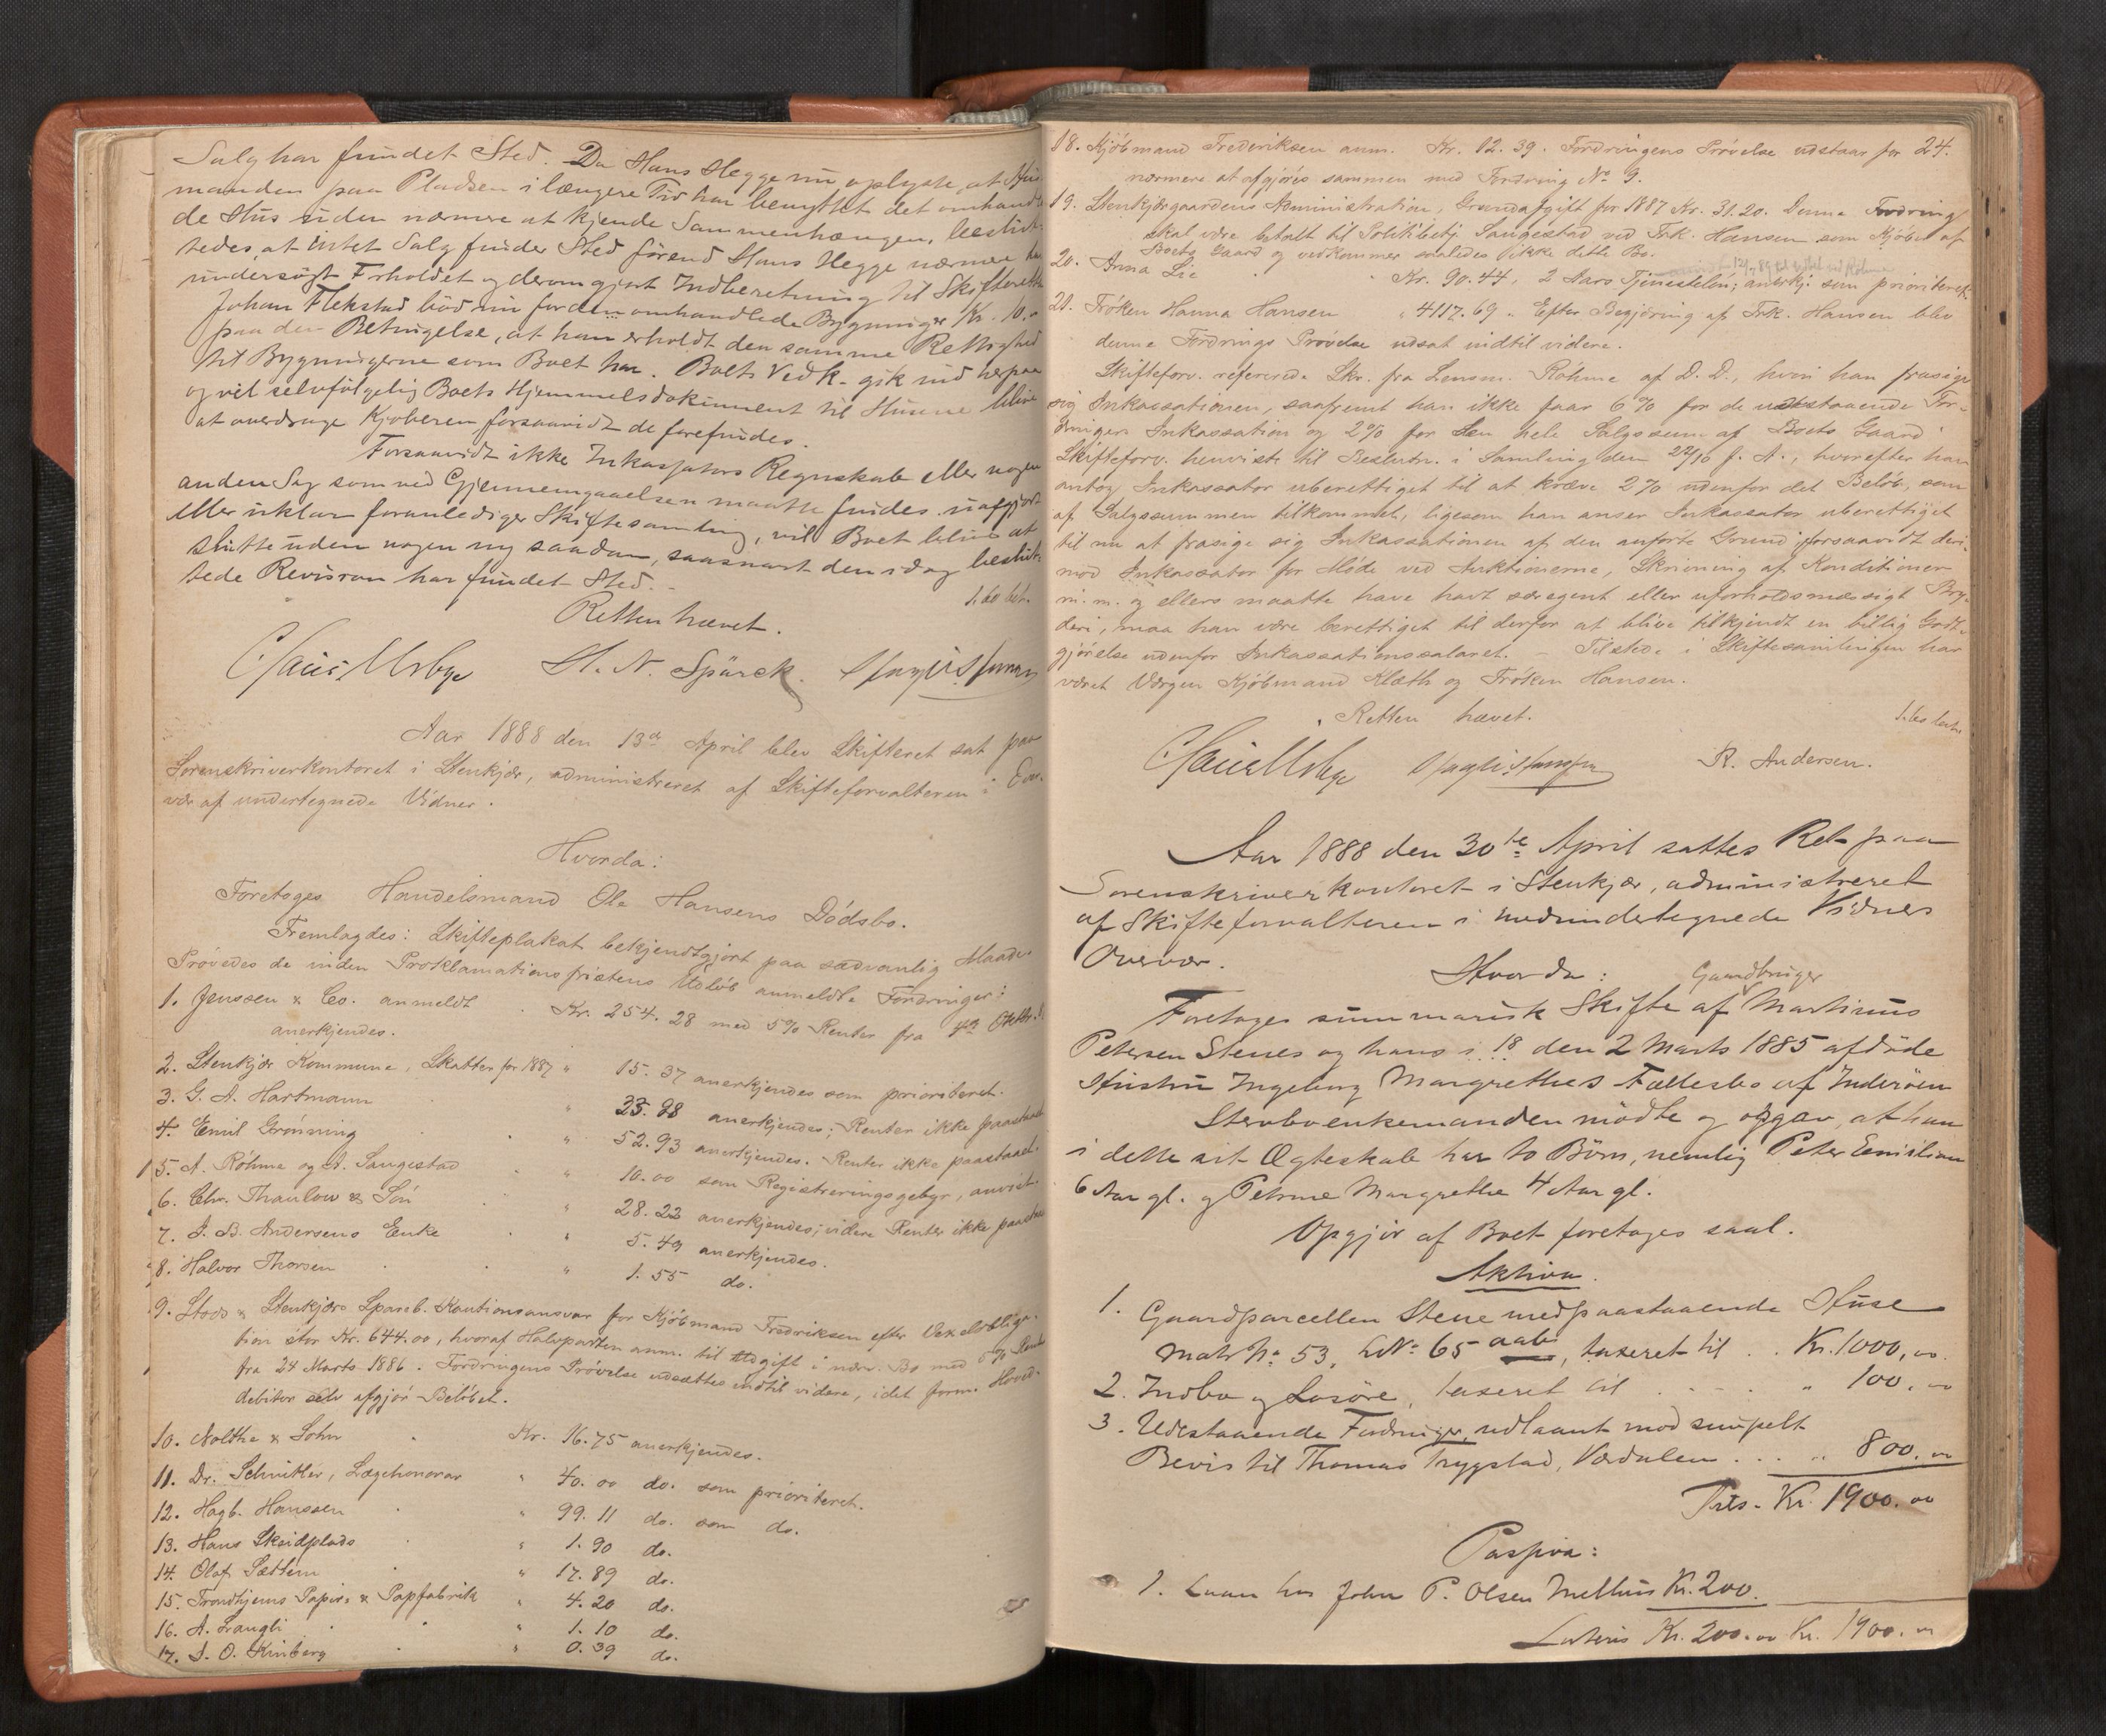 Salg har fundet Sted. Da Hans Hegge nu oplyste, at Hus
manden paa Pladsen i længere Tid har benyttet det omhand
de Hus uden nærmere at kjende Sammenhængen, beslut
tedes, at intet Salg finder Sted førend Hans Hegge nærmere har
undersøgt Forholdet og derom gjort Indberetning til Skifteretten
Johan Flekstad bød nu for den omhandlede Bygninger Kr. 10.00
paa den Betingelse, at han erholdt den samme Rettighed
til Bygningerne som Boet har. Boets Vedk. gik ind herpaa
og vil selvfølgelig Boets Hjemmelsdokument til Husene blive
at overdrage Kjøberen forsaavidt de forefindes.
Forsaavidt ikke Inkassators Regnskab eller nogen
anden Sag som ved Gjennemgaaelsen maatte findes uafgjort
eller uklar foranlediger Skiftesamling, vil Boet blive at
slutte uden nogen ny saadan, saasnart den idag beslut-
tede Revision har fundet Sted. -
1.60 bet.
Retten hævet.
H. N. Spärck.
Aar 1888 den 13de April blev Skifteret sat paa
Sorenskriverkontoret i Stenkjær, administreret af Skifteforvalteren i Over-
vær af undertegnede Vidner.
Hvorda:
Foretoges Handelsmand Ole Hansens Dødsbo.
Fremlagdes: Skifteplakat bekjendtgjort paa sædvanlig Maade.
Prøvedes de inden Proklamationsfristens Udløb anmeldte Fordringer:
1. Jenssen & Co. anmeldt Kr. 254.28 med 5% Renter fra 4de Oktbr.
anerkjendes.
2. Stenkjær Kommune, Skatter for 1887 " 15.37 anerkjendes som prioriteret.
3. G. A. Hartmann " 23.98 anerkjendes; Renter ikke paastaaet
4. Emil Grønning " 52.93 anerkjendes. Renter ikke paastaaet.
5. A. Röhme og A. Sangestad " 10.00 som Registreringsgebyr, anvist.
6. Chr. Thaulow & Søn " 28.22 anerkjendes; videre Renter ikke paastaaet
7. J. B. Andersens Enke " 5.49 anerkjendes.
8. Halvor Thorsen " 1.55 do.
9. Stods & Stenkjærs Spareb. Kautionsansvar for Kjøbmand Fredriksen efter Vexelobliga-
tion stor Kr. 644.00, hvoraf Halvparten anm. til Udgift i nærv. Bo med 6% Rente
fra 24 Marts 1886. Fordringens Prøvelse udsættes indtil videre, idet form. Hoved-
debitor selv afgjør Beløbet.
10. Nolthe & Sohn Kr. 16.75 anerkjendes.
11. Dr. Schnitler, Lægehonorar " 40.00 do. som prioriteret.
12. Hagb. Hanssen " 99.11 do. som do.
13. Hans Skeidplads " 1.90 do.
14. Olaf Sættem " 17.89 do.
15. Trondhjems Papir- & Papfabrik " 4.20 do.
16. A. Frangli " 1.10 do.
17. J. O. Kinberg " 0.39 do.
18. Kjøbmand Frederiksen anm. Kr. 12.39. Fordringens Prøvelse udstaar for 24.
nærmere at afgjøres sammen med Fordring No 9.
19. Stenkjærgaardens Administration, Grundafgift for 1887 Kr. 31.20. Denne Fordring
skal være betalt til Politibetj. Sangestad ved Frk. Hansen som Kjøber af
Boets Gaard og vedkommer saaledes ikke dette Bo.
20. Anna Lie Kr. 90.44, 2 Aars Tjenesteløn; anerkj. som prioriteret.
21. Frøken Hanna Hansen " 4117.69. Efter Begjæring af Frk. Hansen blev
denne Fordrings Prøvelse udsat indtil videre.
Skifteforv. refererede Skr. fra Lensm. Röhme af D. D., hvori han frasiger
sig Inkassationen, saafremt han ikke faar 6% for de udestaaende For-
dringers Inkassation og 2% for den hele Salgssum af Boets Gaard.
Skifteforv. henviste til Beslutn. i Samling den 22/10 f. A., hvorefter han
antog Inkassator uberettiget til at kræve 2% udenfor det Beløb, som
af Salgssummen tilkommet, ligesom han anser Inkassator uberettiget
til nu at frasige sig Inkassationen af den anførte Grund; forsaavidt deri-
mod Inkassator for Møde ved Auktionerne, Skrivning af Konditioner
m. m. og ellers maatte have havt særegent eller uforholdsmæssigt Bry-
deri, maa han være berettiget til derfor at blive tilkjendt en billig Godt-
gjørelse udenfor Inkassationssalaret. - Tilstede i Skiftesamlingen har
været Værgen Kjøbmand Klæth og Frøken Hansen.
Retten hævet.
R. Andersen.
Aar 1888 den 30te April sattes Ret paa
Sorenskriverkontoret i Stenkjær, administreret
af Skifteforvalteren i medundertegnede Vidners
Overvær.
Hvorda:
Gaardbruger
Foretoges summarisk Skifte af Martinus
Petersen Stenes og hans i 18 den 2 Marts 1885 afdøde
Hustru Ingeborg Margrethes Fællesbo af Inderøen
Stervboenkemanden mødte og opgav, at han
i dette sit Ægteskab har to Børn, nemlig Peter Emilian
6 Aar gl. og Petrine Margrethe 4 Aar gl.
Opgjør af Boet foretoges saal.
Aktiva.
1. Gaardparcellen Stene med paastaaende Huse
Matr No 53, LNo 65 aab, taxeret til . . Kr. 1000,00
2. Indbo og Løsøre, taxeret til . . . . " 100.00
3. Udestaaende Fordringer, udlaant mod simpelt
Bevis til Thomas Trygstad, Værdalen . . . " 800.00
Tils. Kr. 1900.00
Passiva:
1. Laan hos John P. Olsen Melhus Kr. 200.
Lateris Kr. 200.00 Kr. 1900.00